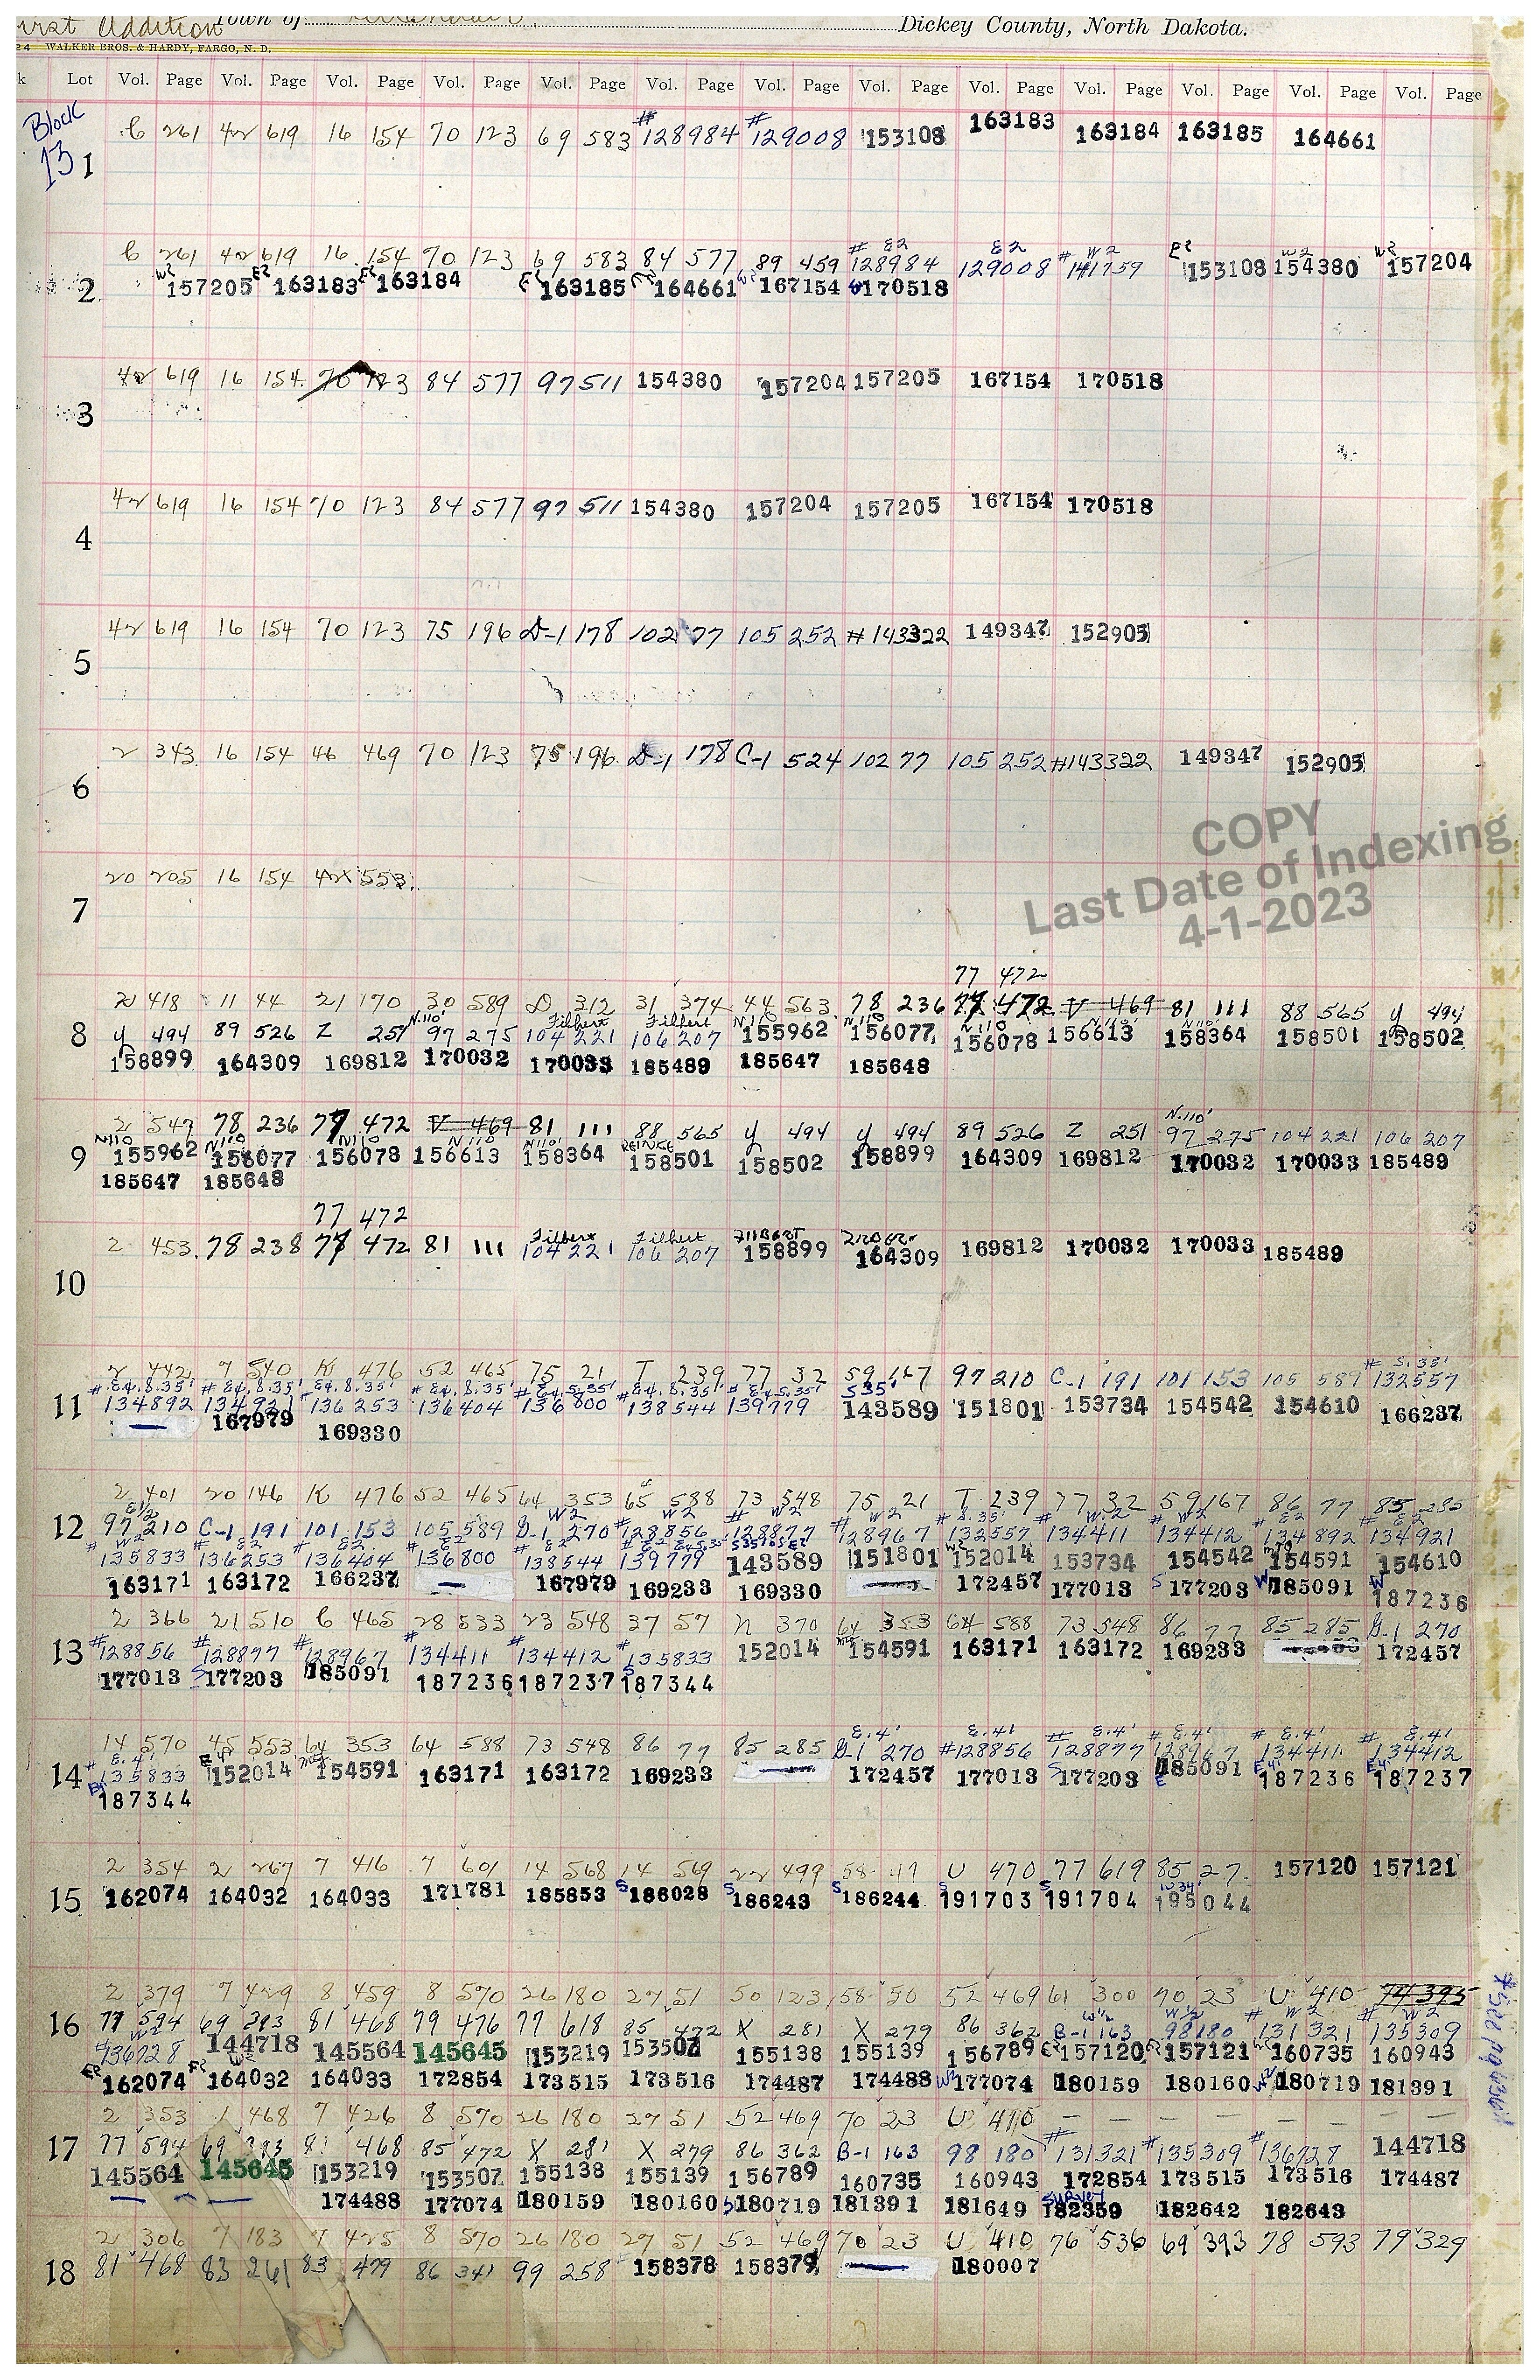 First Addition Town of Dickey County, North Dakota.
24 WALKER BROS. & HARDY, FARGO, N. D.
k Lot Vol. Page Vol. Page Vol. Page Vol. Page Vol. Page Vol. Page Vol. Page Vol. Page Vol. Page Vol. Page Vol. Page Vol. Page Vol. Page
Block 13
C 261 42 619 16 154 70 123 69 583 #128984 #129008 153108 163183 163184 163185 164661
1
# E2 E2 # W2 E2 W2 W2
C 261 42 619 16 154 70 123 69 583 84 577 89 459 128984 129008 141759 153108 154380 157204
W2 157205 E2 163183 E2 163184 E2 163185 E2 164661 W2 167154 W 170518
2
42 619 16 154 70 123 84 577 97 511 154380 157204 157205 167154 170518
3
42 619 16 154 70 123 84 577 97 511 154380 157204 157205 167154 170518
4
42 619 16 154 70 123 75 196 D-1 178 102 77 105 252 #143322 149347 152905
5
2 343 16 154 46 469 70 123 75 196 D-1 178 C-1 524 102 77 105 252 #143322 149347 152905
6
COPY
Last Date of Indexing
4-1-2023
20 205 16 154 42 553
7
77 472
2 418 11 44 21 170 30 589 D 312 31 374 44 563 78 236 77 472 V 469 81 111 88 565 y 494
N.110' Filbert Filbert N110 N.110 N110 N110' N110
8 y 494 89 526 Z 251 97 275 104 221 106 207 155962 156077 156078 156613 158364 158501 158502
158899 164309 169812 170032 170033 185489 185647 185648
2 547 78 236 77 472 V 469 81 111 88 565 y 494 y 494 89 526 Z 251 N.110' 97 275 104 221 106 207
N110 N110 N110 N110 N110'
9 155962 156077 156078 156613 158364 158501 158502 158899 164309 169812 170032 170033 185489
185647 185648
77 472
2 453 78 238 77 472 81 111 Filbert 104 221 Filbert 106 207 FILBERT 158899 164309 169812 170032 170033 185489
10
2 442 7 540 K 476 52 465 75 21 T 239 77 32 59 167 97 210 C-1 191 101 153 105 587 # S.35' 132557
# E4.S.35' # E4.S.35' E4.S.35' # E4.S.35' # E4.S.35' # E4.S.35' # E4 S.35' S35'
11 134892 134921 136253 136404 136800 138544 139779 143589 151801 153734 154542 154610 166237
167979 169330
2 401 20 146 K 476 52 465 64 353 65 588 73 548 75 21 T 239 77 32 59 167 86 77 85 285
E1/2 W2 # W2 # W2 # W2 # S.35' # W2 # W2 # E2 # E2
12 97 210 C-1 191 101 153 105 589 G-1 270 128856 128877 128967 132557 134411 134412 134892 134921
# W2 # E2 # E2 # # E2 # E2
135833 136253 136404 136800 138544 139779 143589 151801 152014 153734 154542 154591 154610
163171 163172 166237 167979 169233 169330 172457 177013 S 177203 W 185091 W 187236
2 366 21 510 C 465 28 533 23 548 37 57 n 370 64 353 64 588 73 548 86 77 85 285 G-1 270
13 #128856 #128877 #128967 #134411 #134412 #135833 152014 154591 163171 163172 169233 172457
177013 S 177203 185091 187236 187237 S 187344
14 570 45 553 64 353 64 588 73 548 86 77 85 285 E.4' G-1 270 E.4' #128856 # E.4' 128877 # E.4' 128967 # E.4' 134411 # E.4' 134412
14 # E.4' 135833 E4' 152014 154591 163171 163172 169233 172457 177013 S 177203 E 185091 E4' 187236 E4' 187237
187344
2 354 2 267 7 416 7 601 14 568 14 569 22 499 58 47 U 470 77 619 85 27 157120 157121
15 162074 164032 164033 171781 185853 S 186028 S 186243 S 186244 S 191703 S 191704 W34' 195044
2 379 7 429 8 459 8 570 26 180 27 51 50 123 58 50 52 469 61 300 70 23 U 410 74 395
16 77 594 69 393 81 468 79 476 77 618 85 472 X 281 X 279 86 362 W1/2 B-1 163 W1/2 98 180 # W2 131321 # W2 135309
W2 #136728 144718 145564 145645 153219 153507 155138 155139 156789 E2 157120 E2 157121 W2 160735 160943
E2 162074 E2 164032 164033 172854 173515 173516 174487 174488 W2 177074 180159 180160 W2 180719 181391
2 353 1 468 7 426 8 570 26 180 27 51 52 469 70 23 U 410 — — — —
17 77 594 69 393 81 468 85 472 X 281 X 279 86 362 B-1 163 98 180 #131321 #135309 #136728 144718
145564 145645 153219 153507 155138 155139 156789 160735 160943 172854 173515 173516 174487
174488 177074 180159 180160 180719 181391 181649 SURVEY 182359 182642 182643
2 306 7 183 7 425 8 570 26 180 27 51 52 469 70 23 U 410 76 536 69 393 78 593 79 329
18 81 468 83 261 83 479 86 341 99 258 158378 158379 180007